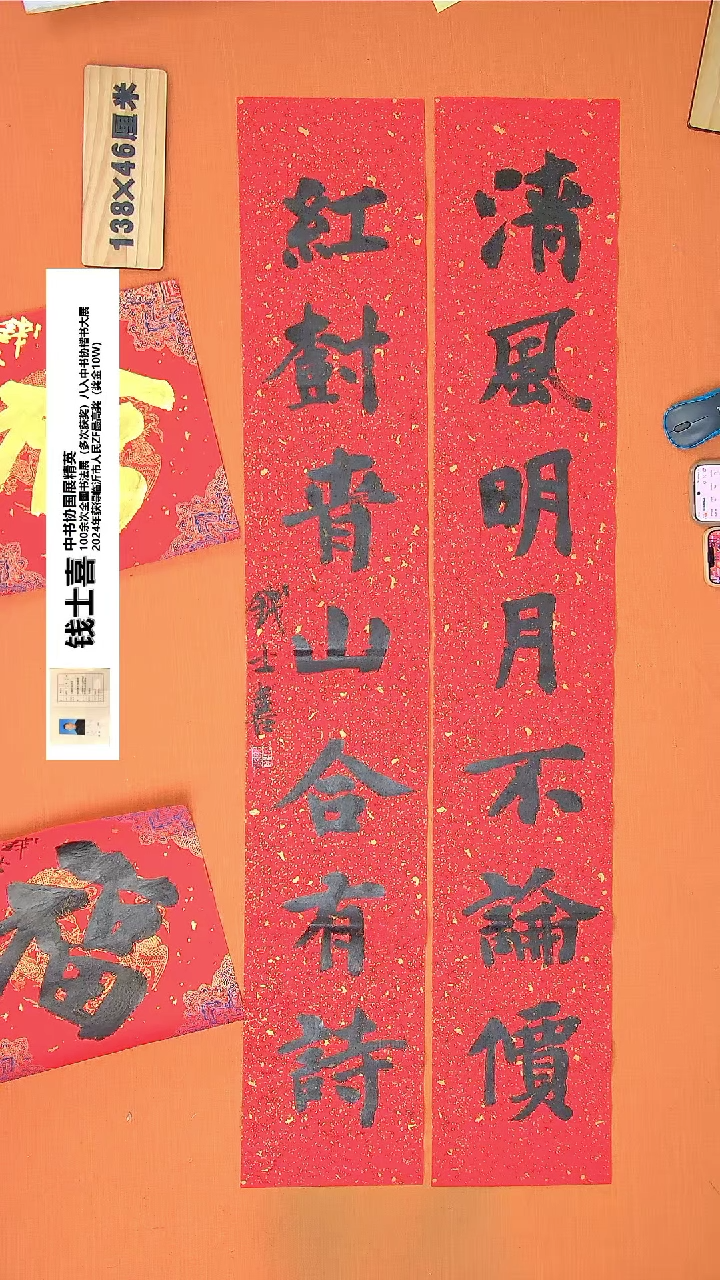 清風明月不論價
紅樹青山合有詩
錢士喜
138×46厘米
钱士喜
中书协国展精英
100余次全国书法展（多次获奖）八入中书协楷书大展
2024年获得临沂市人民ZF最高奖（奖金10W）